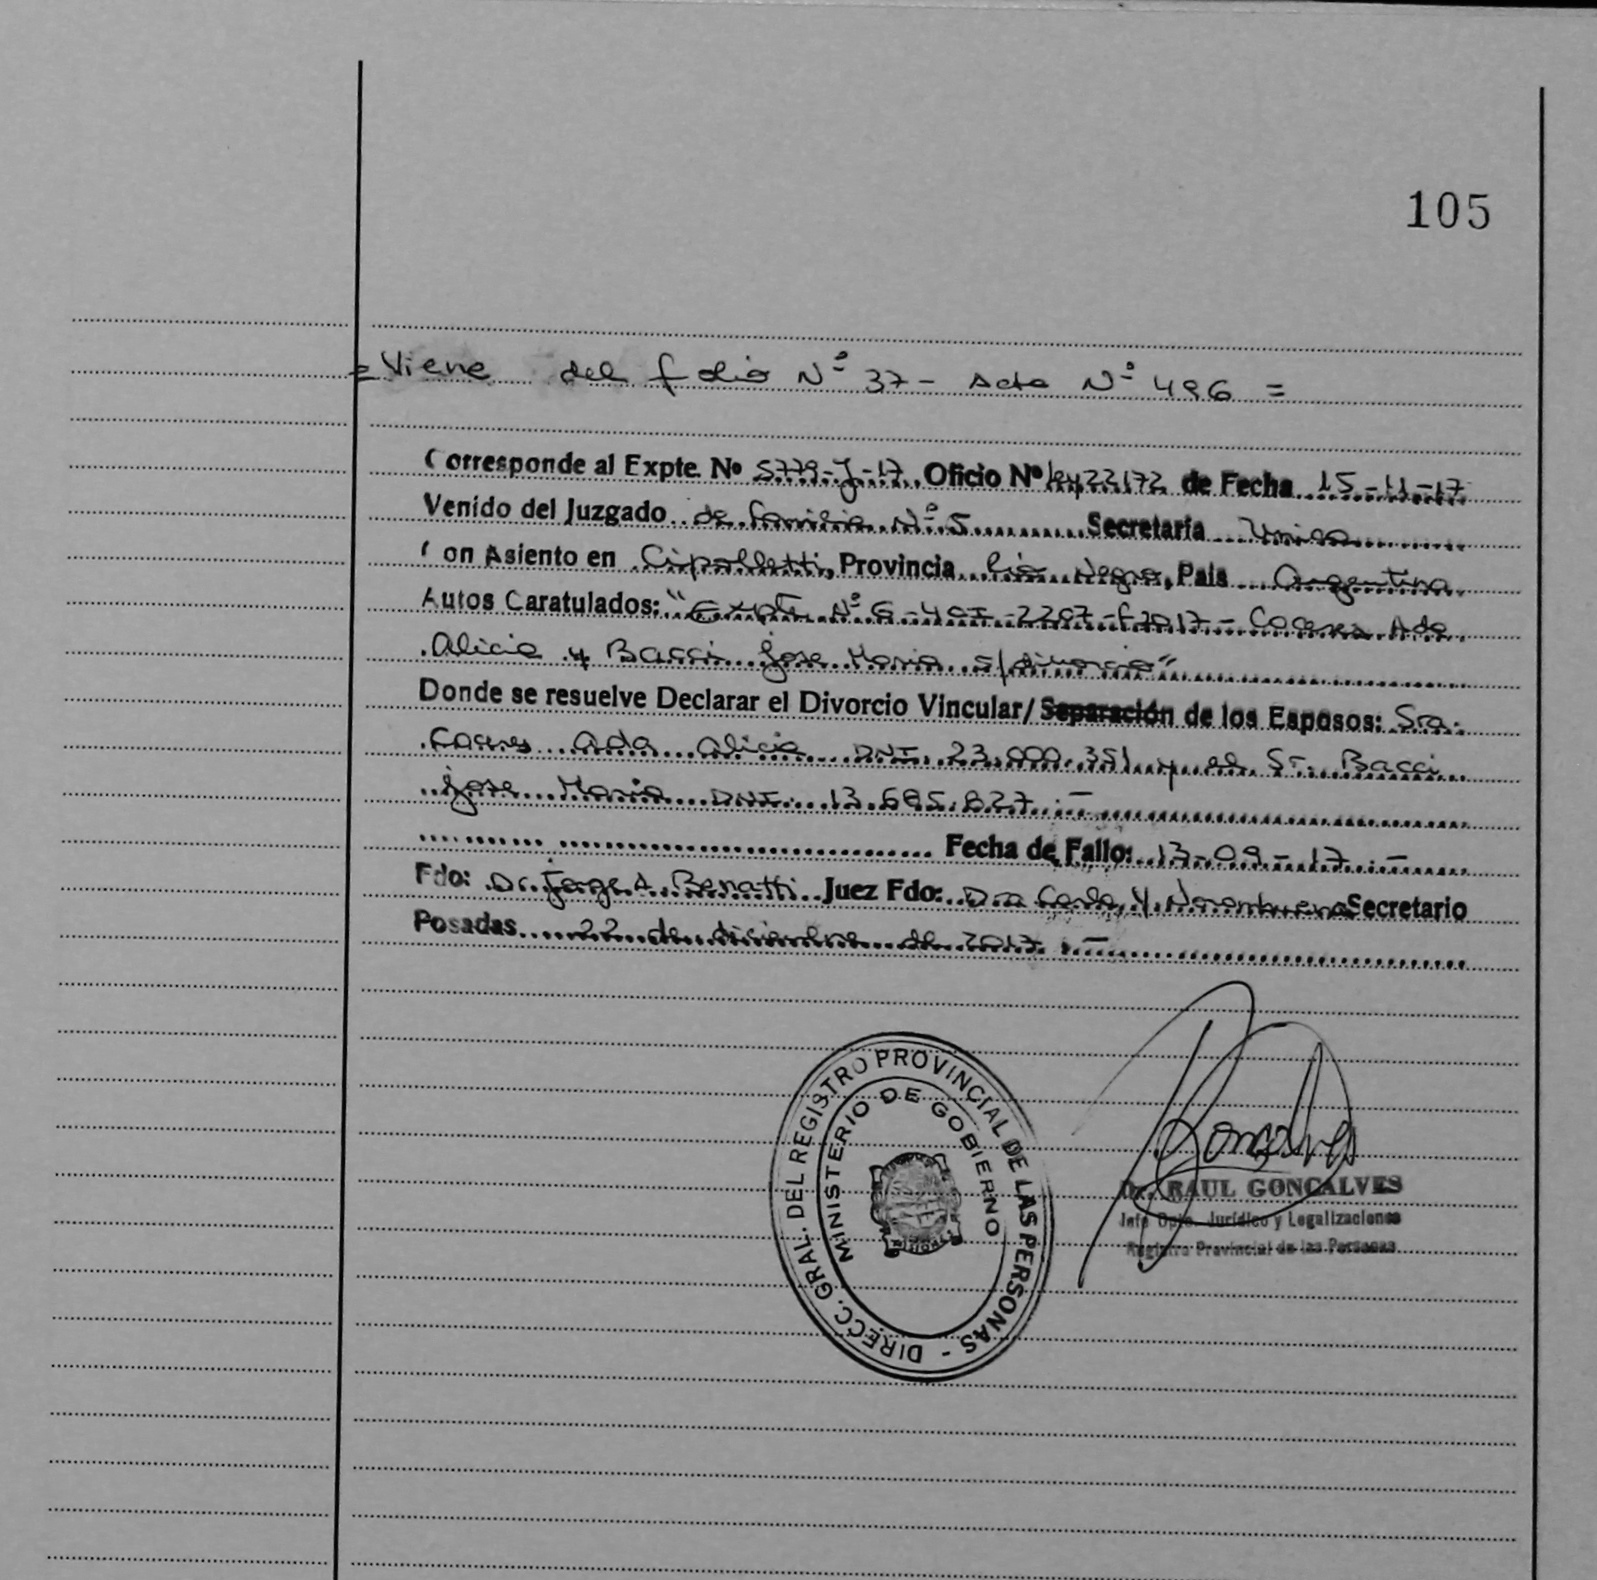 105
= Viene del folio Nº 37 - Acta Nº 496 =
Corresponde al Expte. Nº 5779-J-17 Oficio Nº Ley 22172 de Fecha 15-11-17
Venido del Juzgado de familia Nº 5 Secretaría Unica
Con Asiento en Cipolletti, Provincia Río Negro, País Argentina
Autos Caratulados: "Expte Nº G-4CI-2207-F2017 - Caceres Ada
Alicia y Bacci Jose Maria s/divorcio"
Donde se resuelve Declarar el Divorcio Vincular/Separación de los Esposos: Sra.
Caceres Ada Alicia DNI. 23.000.351 y el Sr. Bacci
Jose Maria DNI. 13.695.827.-
Fecha de Fallo: 13-09-17.-
Fdo: Dr. Jorge A. Benatti Juez Fdo: Dra Carla Y. Norambuena Secretario
Posadas 22 de diciembre de 2017.-
DIRECC. GRAL. DEL REGISTRO PROVINCIAL DE LAS PERSONAS -
MINISTERIO DE GOBIERNO
MISIONES
Goncalves
Dr. RAUL GONCALVES
Jefe Dpto. Jurídico y Legalizaciones
Registro Provincial de las Personas